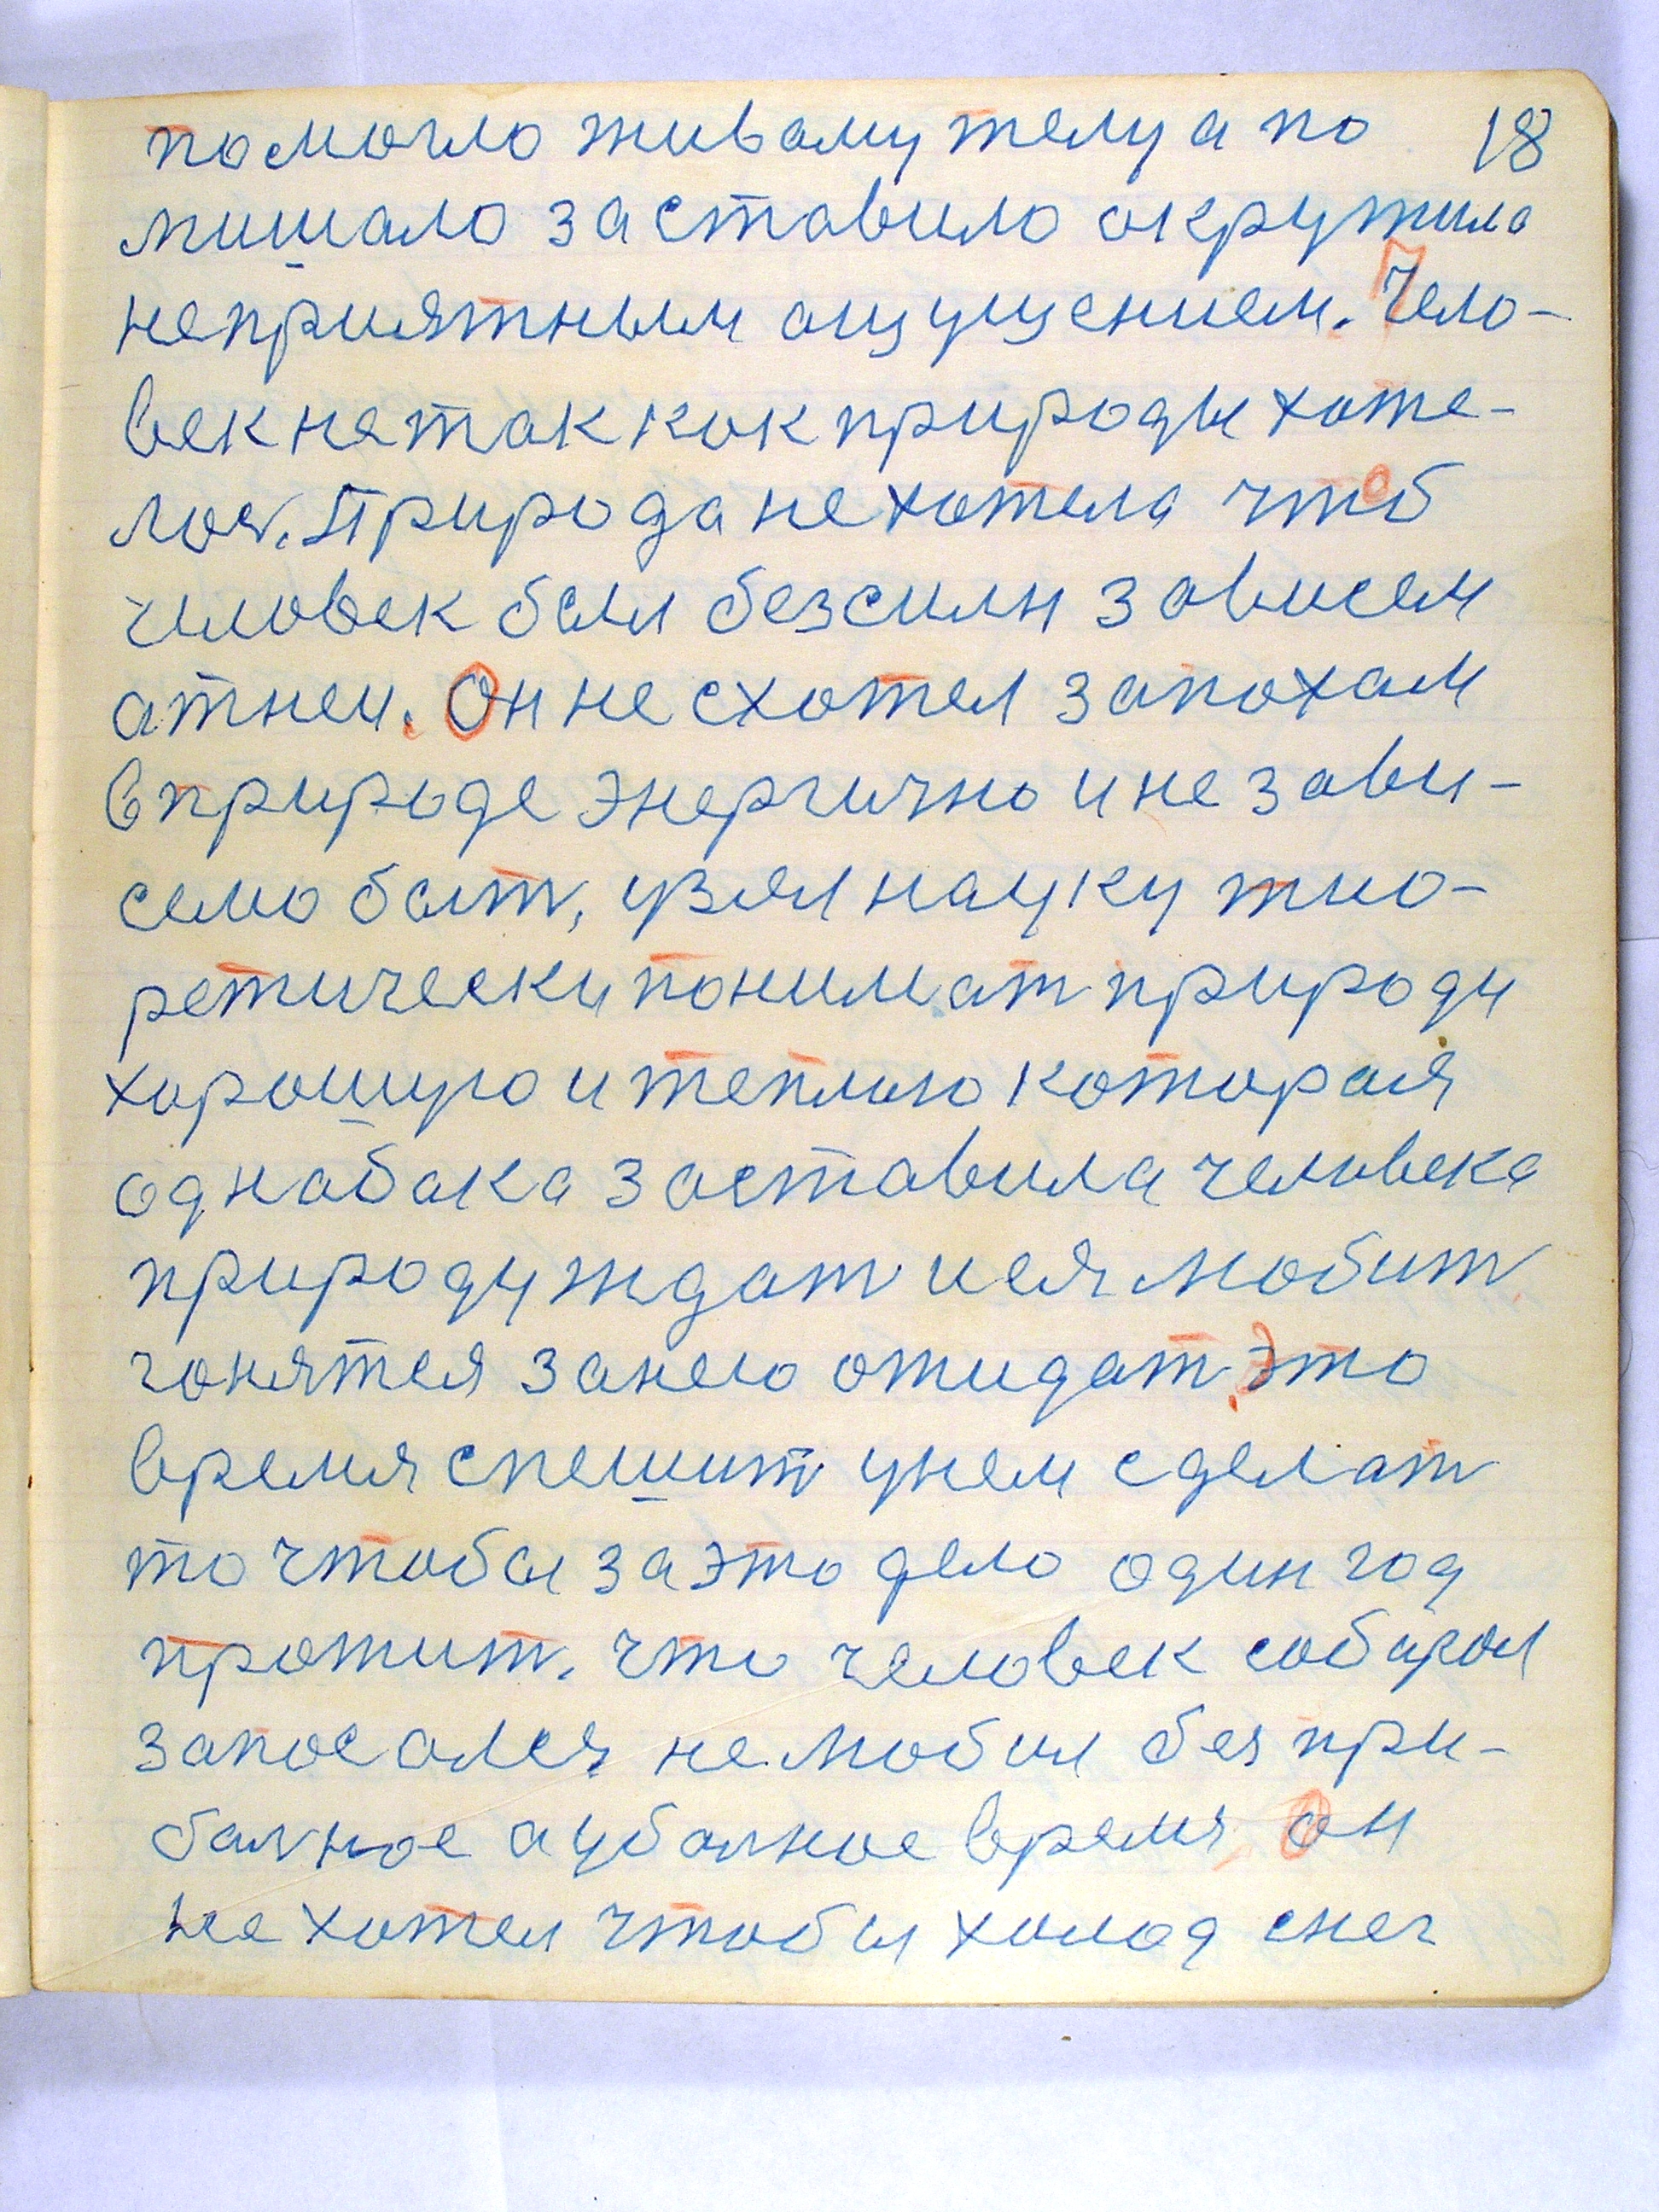 помогло живаму телу а по 18
мишало заставило окружила
неприятным ощущением. Чело-
век не так как природы хоте-
лос. Природа не хотела чтоб
чиловек был безсилн зависем
атнеи. Он не схотел запохам
в природе энергично и не зави-
семо быт, узял науку тио-
ретически понимат природу
хорошую и теплую которая
однабака заставила человека
природу ждат и ея любит
гонятся занею ожидат. Это
время спешит унем сделат
то чтобы за это дело один год
прожит. что человек собирал
запосался не любил без при-
балное а убалное время он
не хотел чтобы холод снег